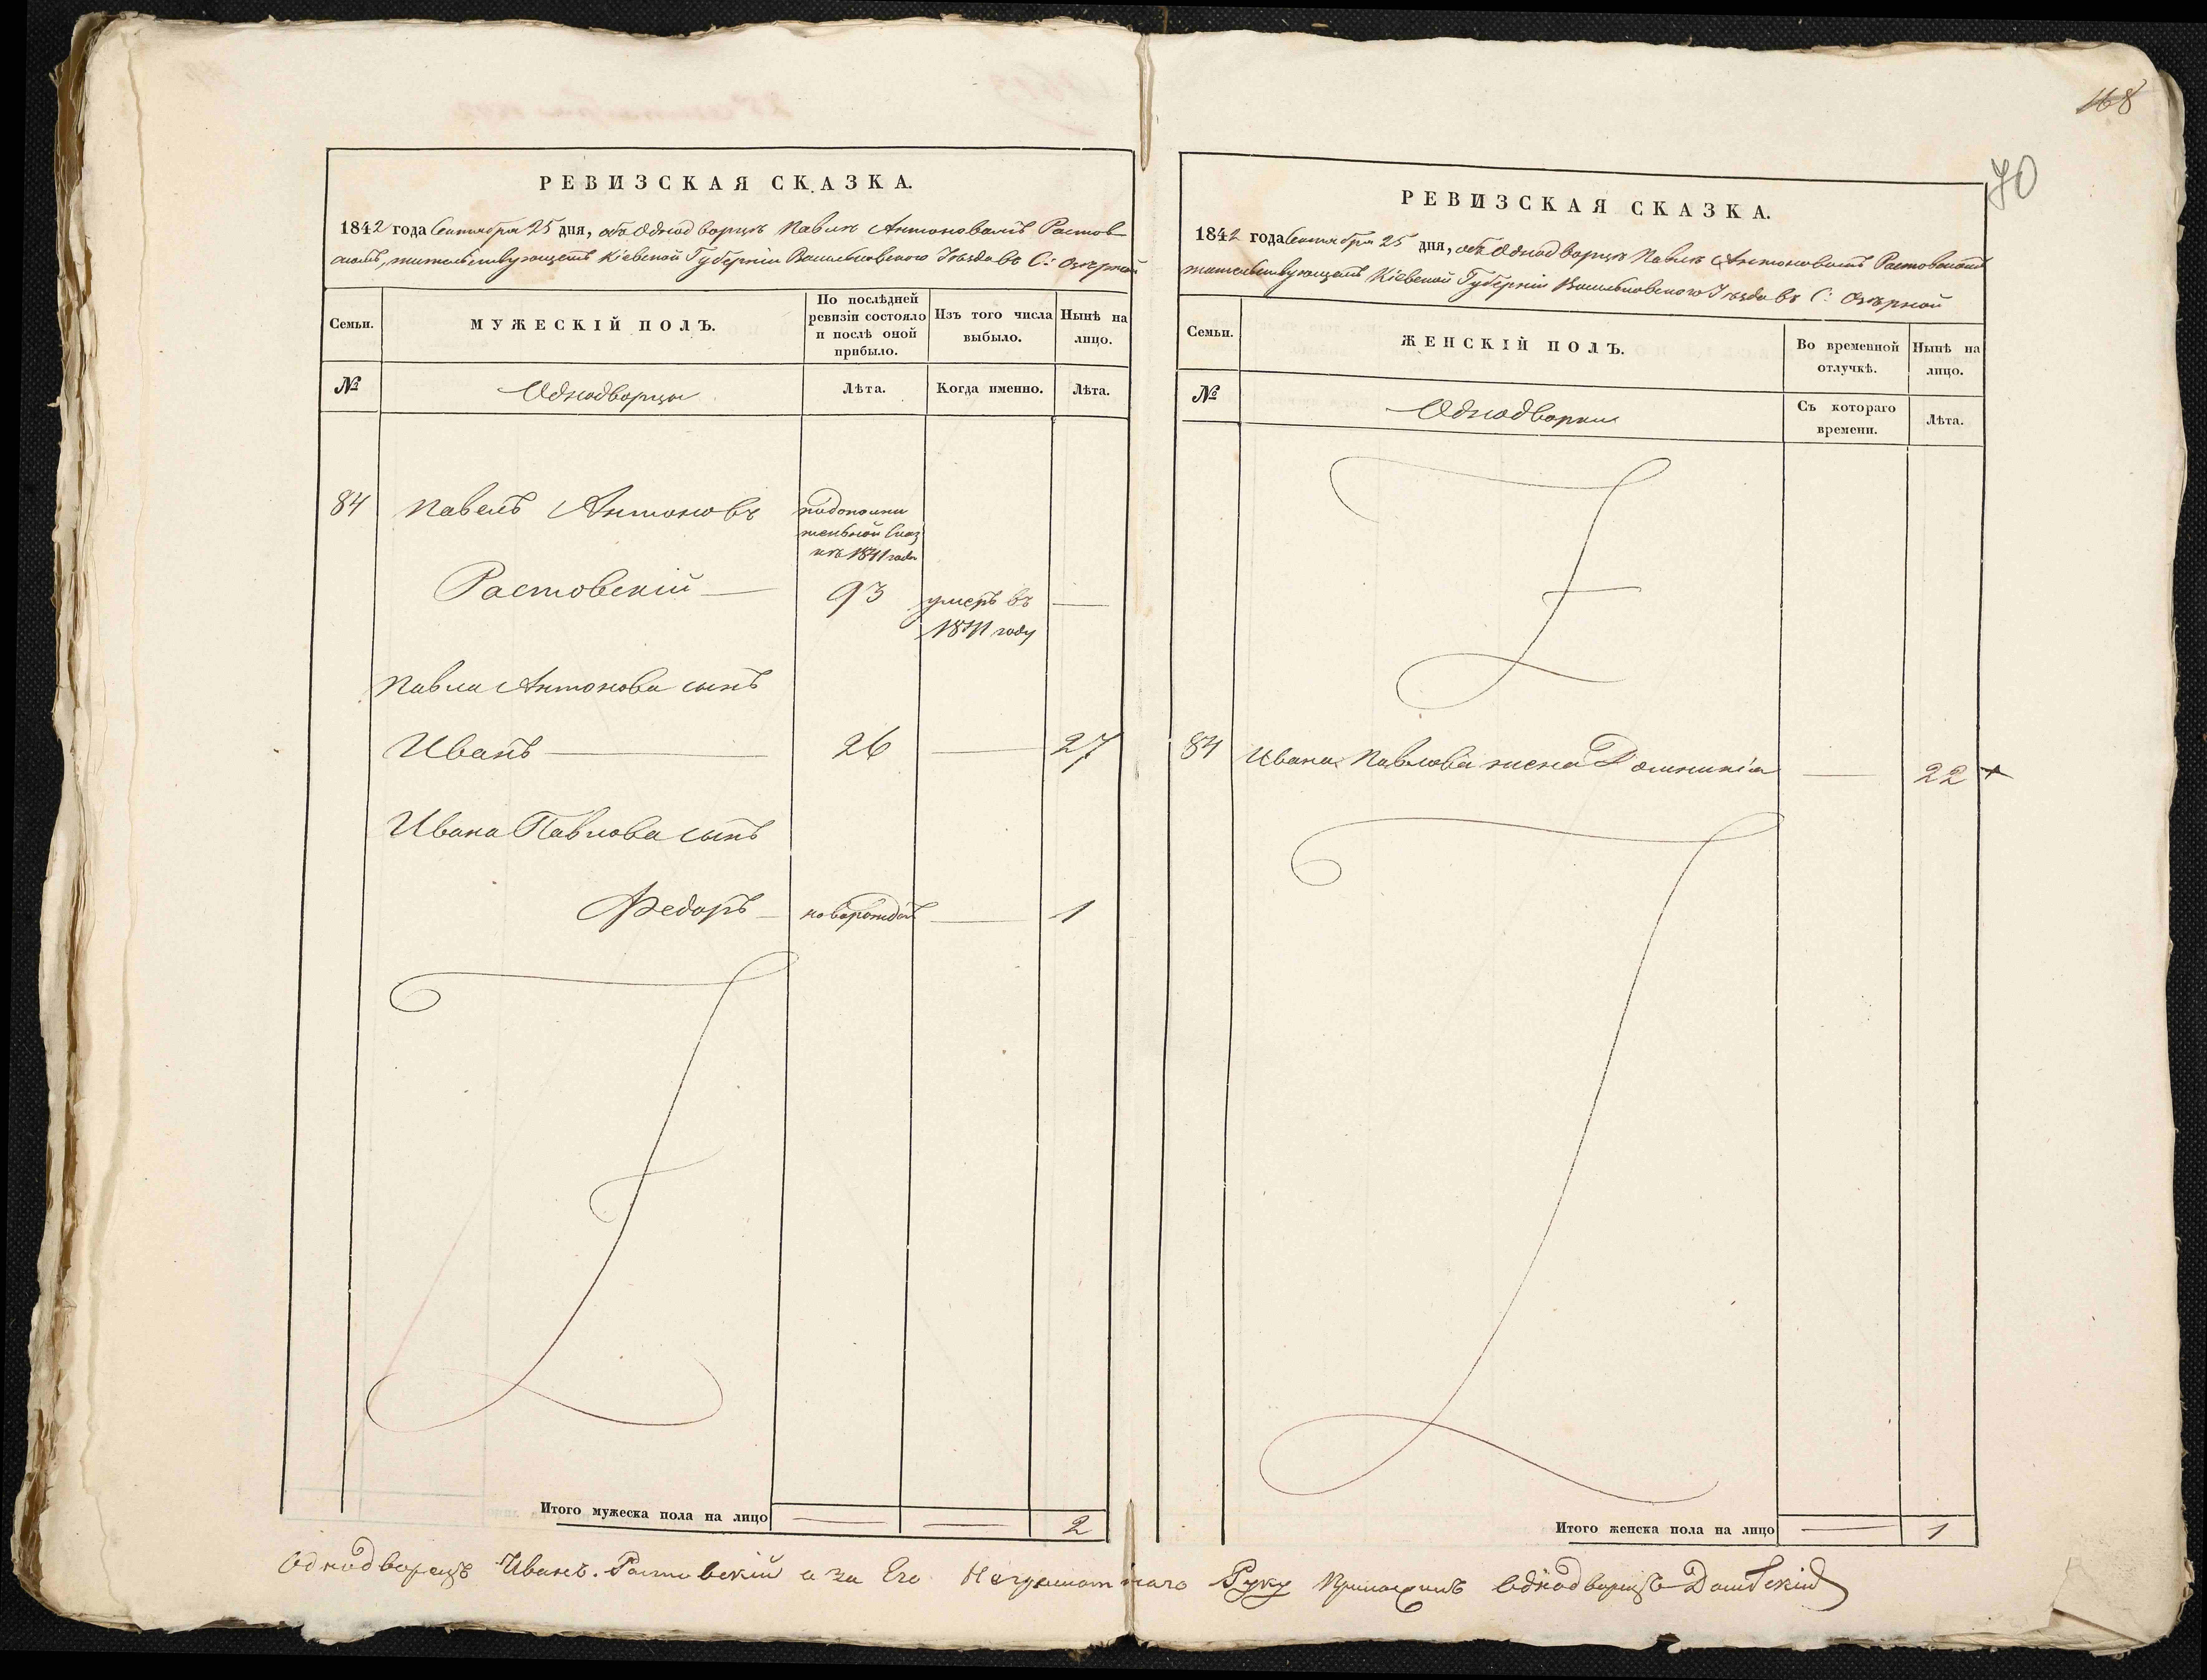 168
70
РЕВИЗСКАЯ СКАЗКА.
1842 года Сентября 25 дня, объ Однодворцѣ Павлѣ Антоновомъ Растов-
скомъ, жительствующемъ Кіевской Губерніи Васильковскаго Уѣзда въ С: Озѣрной
Семьи.
МУЖЕСКІЙ ПОЛЪ.
По послѣдней ревизіи состояло и послѣ оной прибыло.
Изъ того числа выбыло.
Нынѣ на лицо.
№
Однодворцы
Лѣта.
Когда именно.
Лѣта.
84 Павелъ Антоновъ
подополни
тельной Сказ
кѣ 1841 года
Растовскій — 93 умеръ въ —
1841 году
Павла Антонова сынъ
Иванъ — 26 — 27
Ивана Павлова сынъ
Федоръ — новорожден — 1
Итого мужеска пола на лицо — — 2
РЕВИЗСКАЯ СКАЗКА.
1842 года Сентября 25 дня, объ Однодворцѣ Павлѣ Антоновомъ Растовскомъ
жительствующемъ Кіевской Губерніи Васильковскаго Уѣзда въ С: Озѣрной
Семьи.
ЖЕНСКІЙ ПОЛЪ.
Во временной отлучкѣ.
Нынѣ на лицо.
№
Однодворки
Съ котораго времени.
Лѣта.
84 Ивана Павлова жена Доминикія — 22
Итого женска пола на лицо — 1
Однодворецъ Иванъ Растовскій а за Его Неграмотнаго Руку Приложилъ Однодворецъ